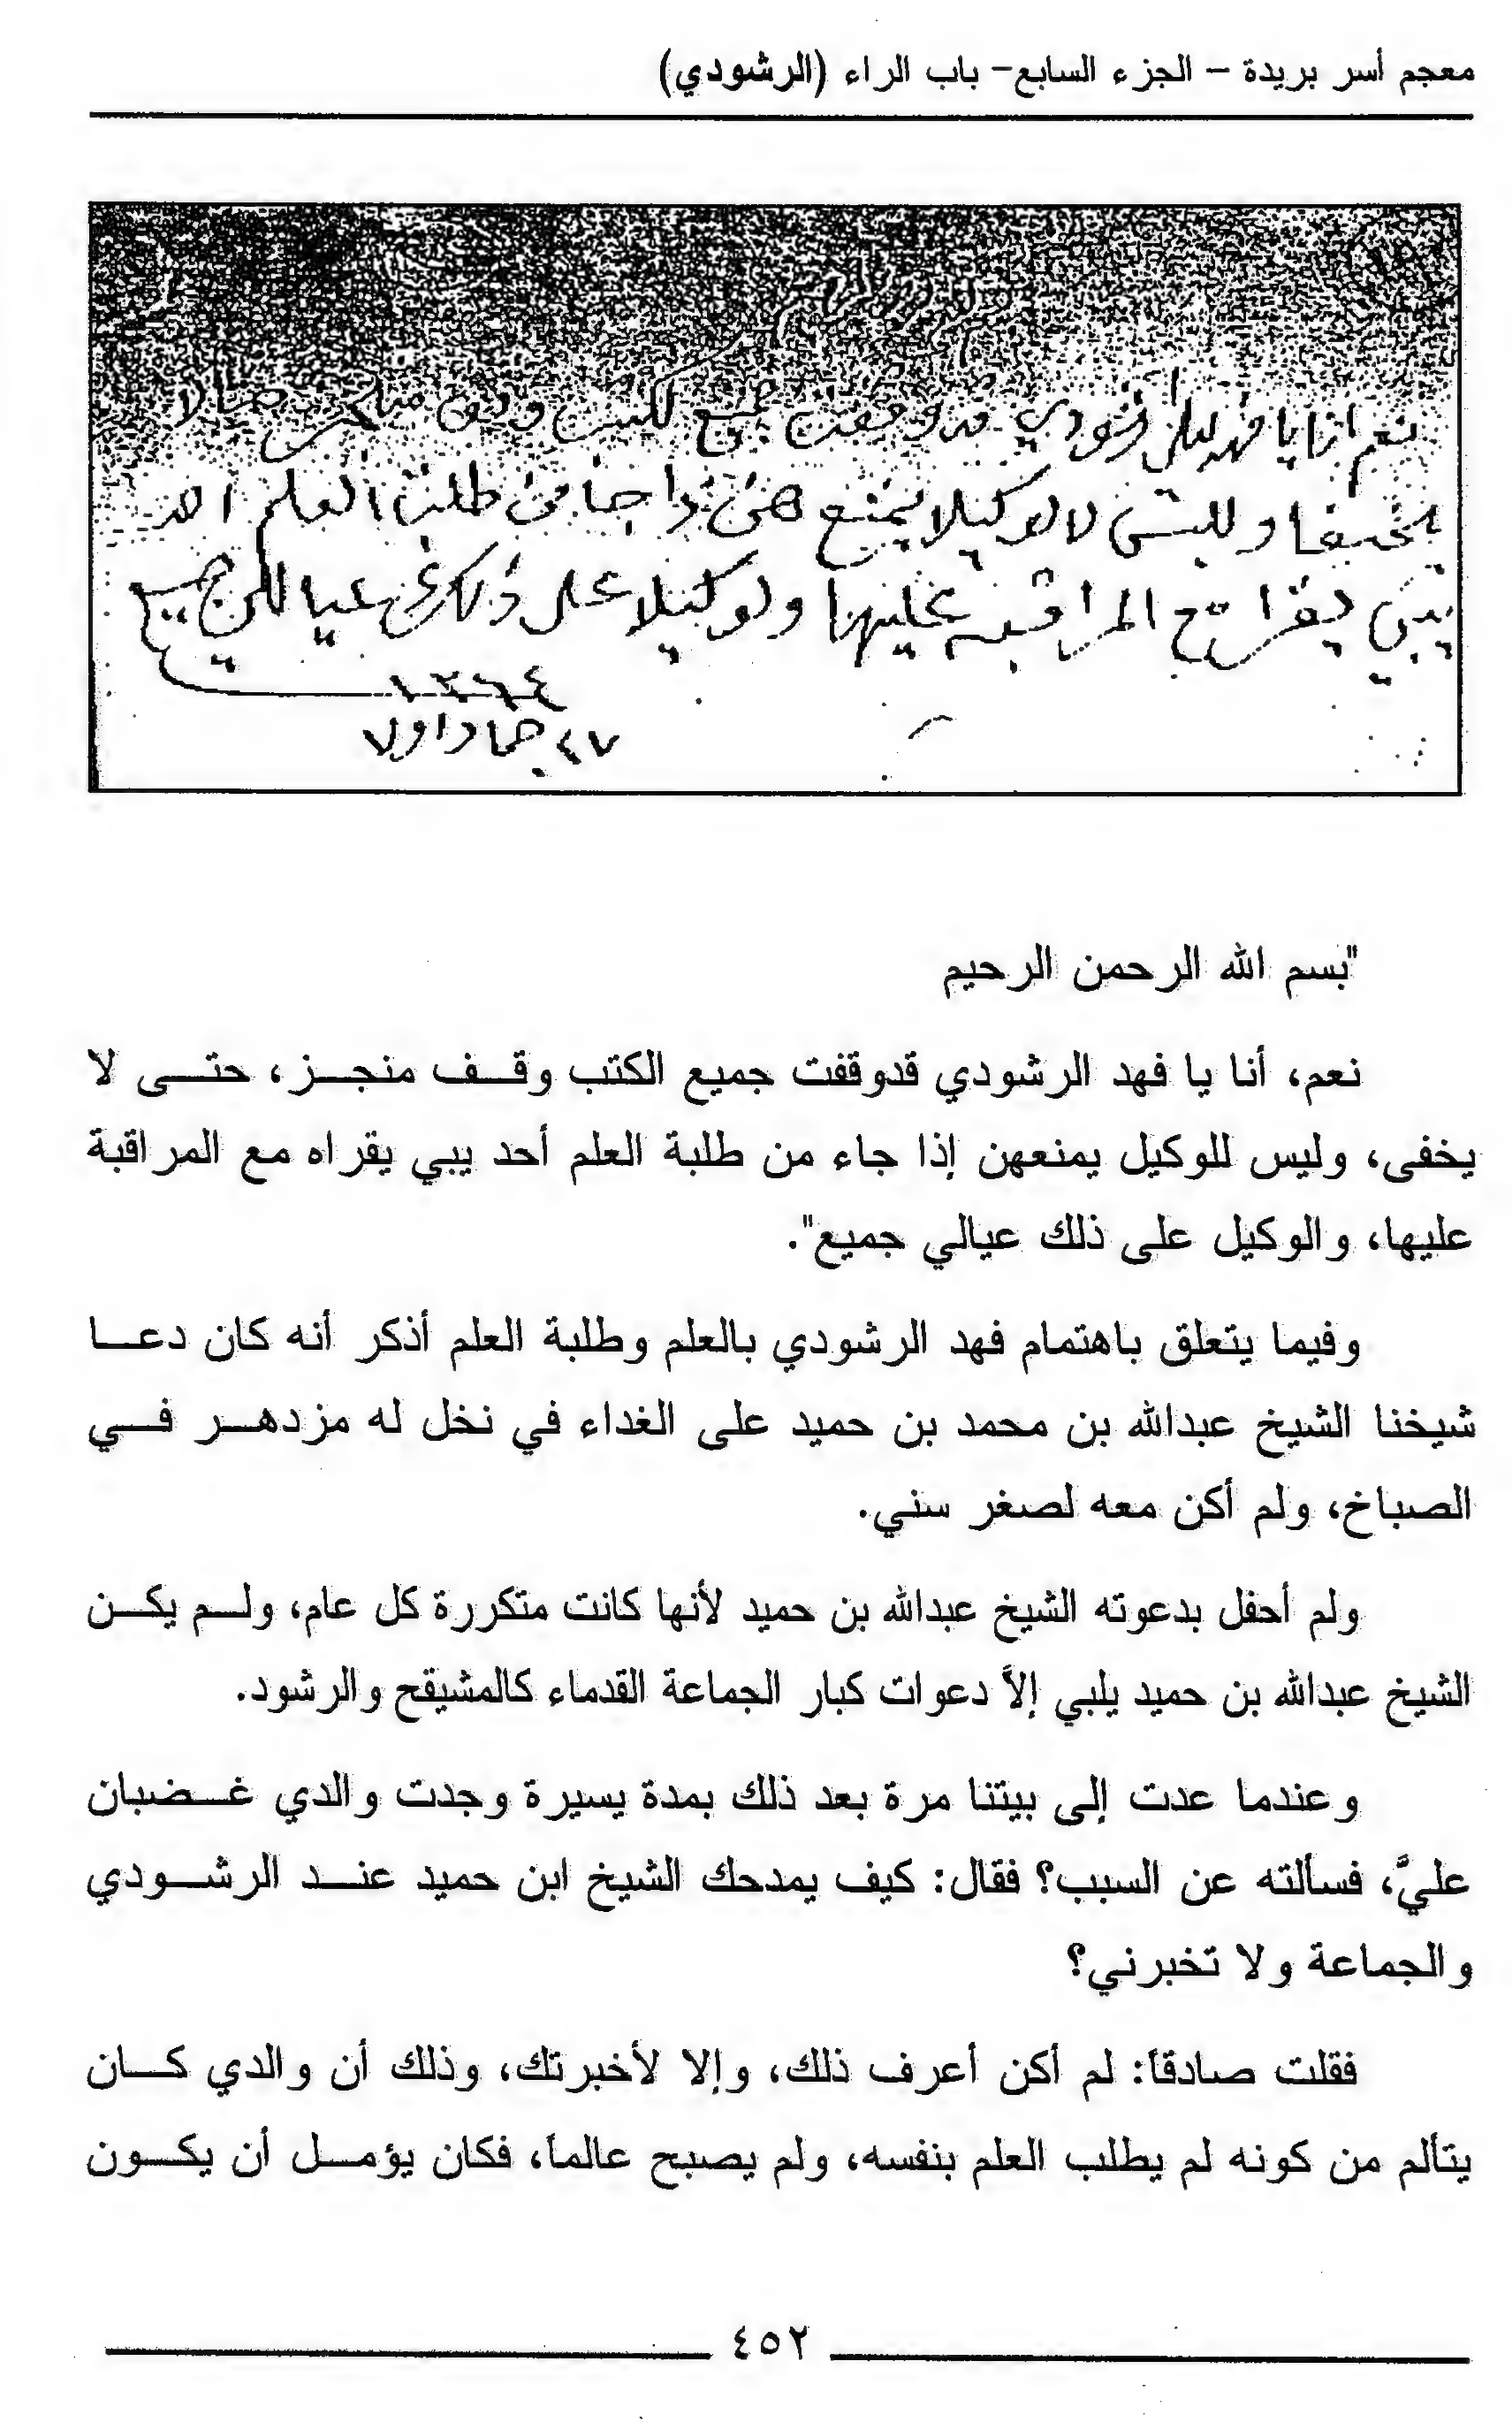 معجم أسر بريدة – الجزء السابع– باب الراء (الرشودي)
نعم انا يا فهد
قد وقفت جميع
لا
من طلبت العلم احد
يبي يقراه مع المراقبه عليها ولوكيلا على ذلك عيالي جميع
١٣٦٤
٢٧ جماد اول
"بسم الله الرحمن الرحيم
نعم، أنا يا فهد الرشودي قدوقفت جميع الكتب وقف منجز، حتى لا
يخفى، وليس للوكيل يمنعهن إذا جاء من طلبة العلم أحد يبي يقراه مع المراقبة
عليها، والوكيل على ذلك عيالي جميع".
وفيما يتعلق باهتمام فهد الرشودي بالعلم وطلبة العلم أذكر أنه كان دعا
شيخنا الشيخ عبدالله بن محمد بن حميد على الغداء في نخل له مزدهر في
الصباخ، ولم أكن معه لصغر سني.
ولم أحفل بدعوته الشيخ عبدالله بن حميد لأنها كانت متكررة كل عام، ولم يكن
الشيخ عبدالله بن حميد يلبي إلاَّ دعوات كبار الجماعة القدماء كالمشيقح والرشود.
وعندما عدت إلى بيتنا مرة بعد ذلك بمدة يسيرة وجدت والدي غضبان
عليَّ، فسألته عن السبب؟ فقال: كيف يمدحك الشيخ ابن حميد عند الرشودي
والجماعة ولا تخبرني؟
فقلت صادقاً: لم أكن أعرف ذلك، وإلا لأخبرتك، وذلك أن والدي كان
يتألم من كونه لم يطلب العلم بنفسه، ولم يصبح عالماً، فكان يؤمل أن يكون
٤٥٢